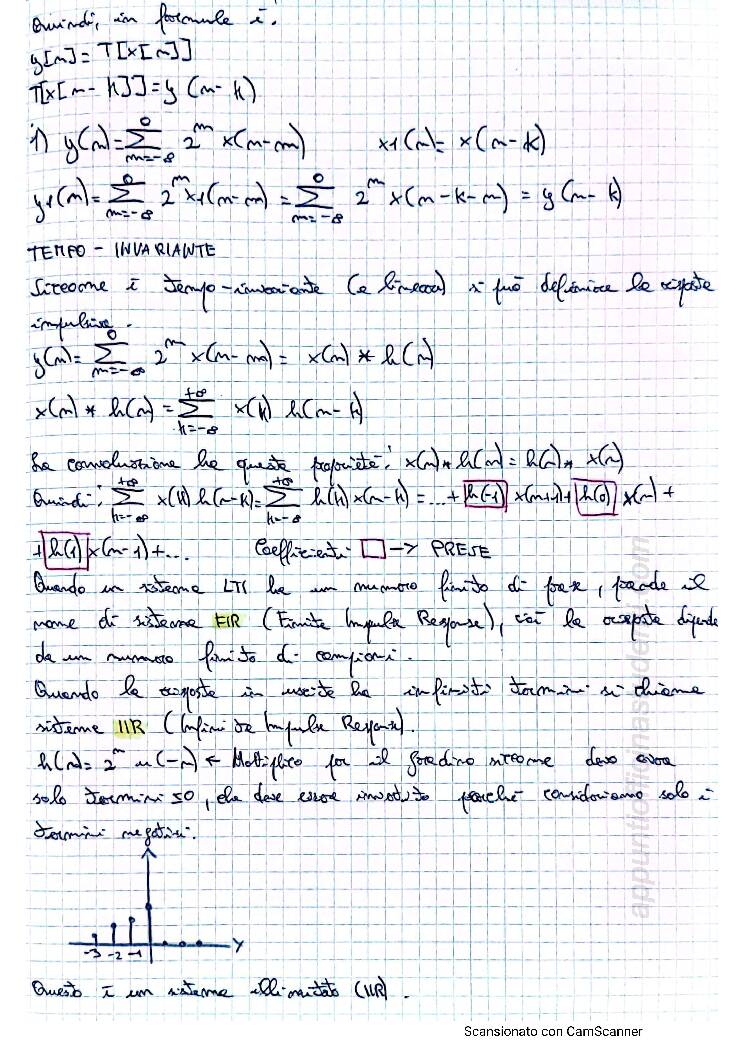 Quindi, in formule è.
y[n] = T[x[n]]
T[x[n-k]] = y(n-k)
1) y(n) = ∑_{m=-∞}^{0} 2^m x(n-m)     x1(n) = x(n-k)
y1(n) = ∑_{m=-∞}^{0} 2^m x1(n-m) = ∑_{m=-∞}^{0} 2^m x(n-k-m) = y(n-k)
TEMPO - INVARIANTE
Siccome è tempo-invariante (e lineare) si può definire la risposta
impulsiva.
y(n) = ∑_{m=-∞}^{0} 2^m x(n-m) = x(n) * h(n)
x(n) * h(n) = ∑_{k=-∞}^{+∞} x(k) h(n-k)
La convoluzione ha questa proprietà: x(n) * h(n) = h(n) * x(n)
Quindi: ∑_{k=-∞}^{+∞} x(k) h(n-k) = ∑_{k=-∞}^{+∞} h(k) x(n-k) = ... + h(-1) x(n+1) + h(0) x(n) +
+ h(1) x(n-1) + ...     Coefficienti □ -> PRESE
Quando un sistema LTI ha un numero finito di prese, prende il
nome di sistema FIR (Finite Impulse Response), cioè la risposta dipende
da un numero finito di campioni.
Quando la risposta in uscita ha infiniti termini si chiama
sistema IIR (Infinite Impulse Response).
h(n) = 2^n u(-n) ← Moltiplico per il gradino siccome devo avere
solo termini ≤0, che deve essere invertito perché consideriamo solo i
termini negativi.
-3 -2 -1
Questo è un sistema illimitato (IIR).
appuntiofficinastudenti.com
Scansionato con CamScanner